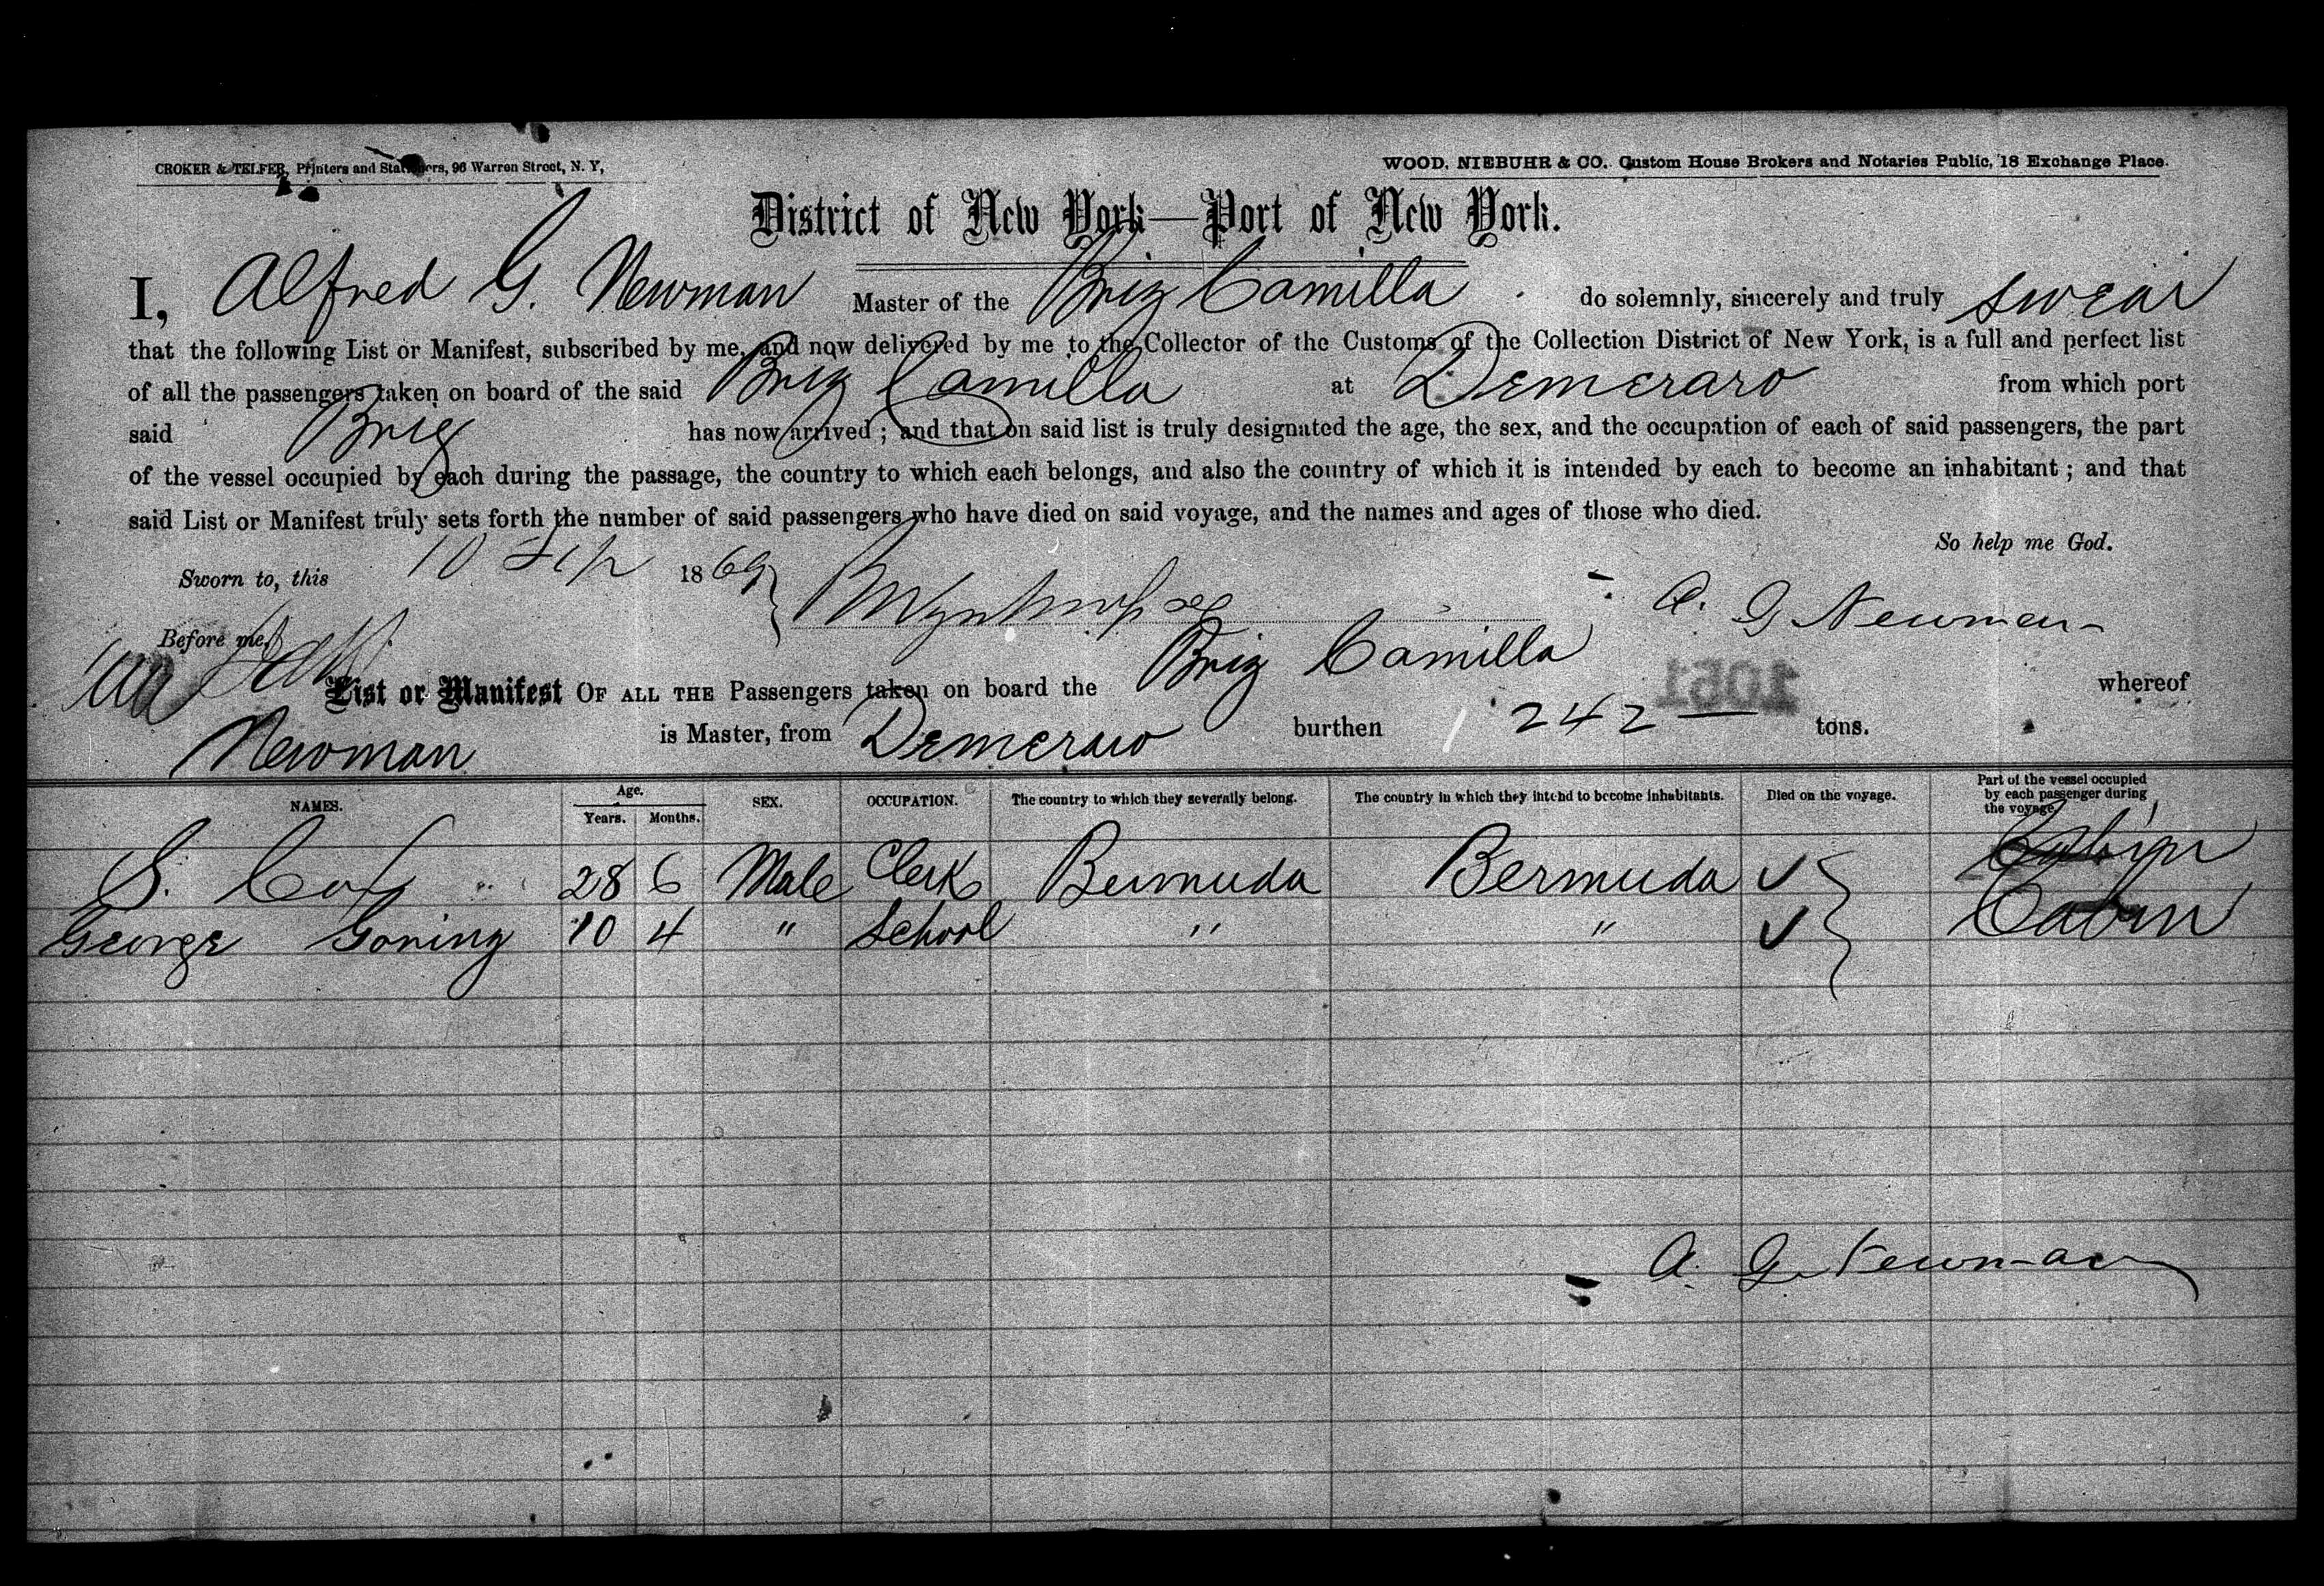 CROKER & TELFER, Printers and Stationers, 96 Warren Street, N. Y,
WOOD, NIEBUHR & CO. Custom House Brokers and Notaries Public, 18 Exchange Place.
District of New York—Port of New York.
I, Alfred G. Newman Master of the Brig Camilla do solemnly, sincerely and truly swear
that the following List or Manifest, subscribed by me, and now delivered by me to the Collector of the Customs of the Collection District of New York, is a full and perfect list
of all the passengers taken on board of the said Brig Camilla at Demeraro from which port
said Brig has now arrived; and that on said list is truly designated the age, the sex, and the occupation of each of said passengers, the part
of the vessel occupied by each during the passage, the country to which each belongs, and also the country of which it is intended by each to become an inhabitant; and that
said List or Manifest truly sets forth the number of said passengers who have died on said voyage, and the names and ages of those who died.
So help me God.
Sworn to, this 10 Sep 1869
A. G Newman
Before me,
List or Manifest OF ALL THE Passengers taken on board the Brig Camilla whereof
1051
Newman is Master, from Demeraro burthen 242 — tons.
NAMES. Age. Years. Months. SEX. OCCUPATION. The country to which they severally belong. The country in which they intend to become inhabitants. Died on the voyage. Part of the vessel occupied by each passenger during the voyage.
S. 28 6 Male Clerk Bermuda Bermuda ✓ Cabin
George Goring 10 4 " School " " ✓ Cabin
A. G. Newman